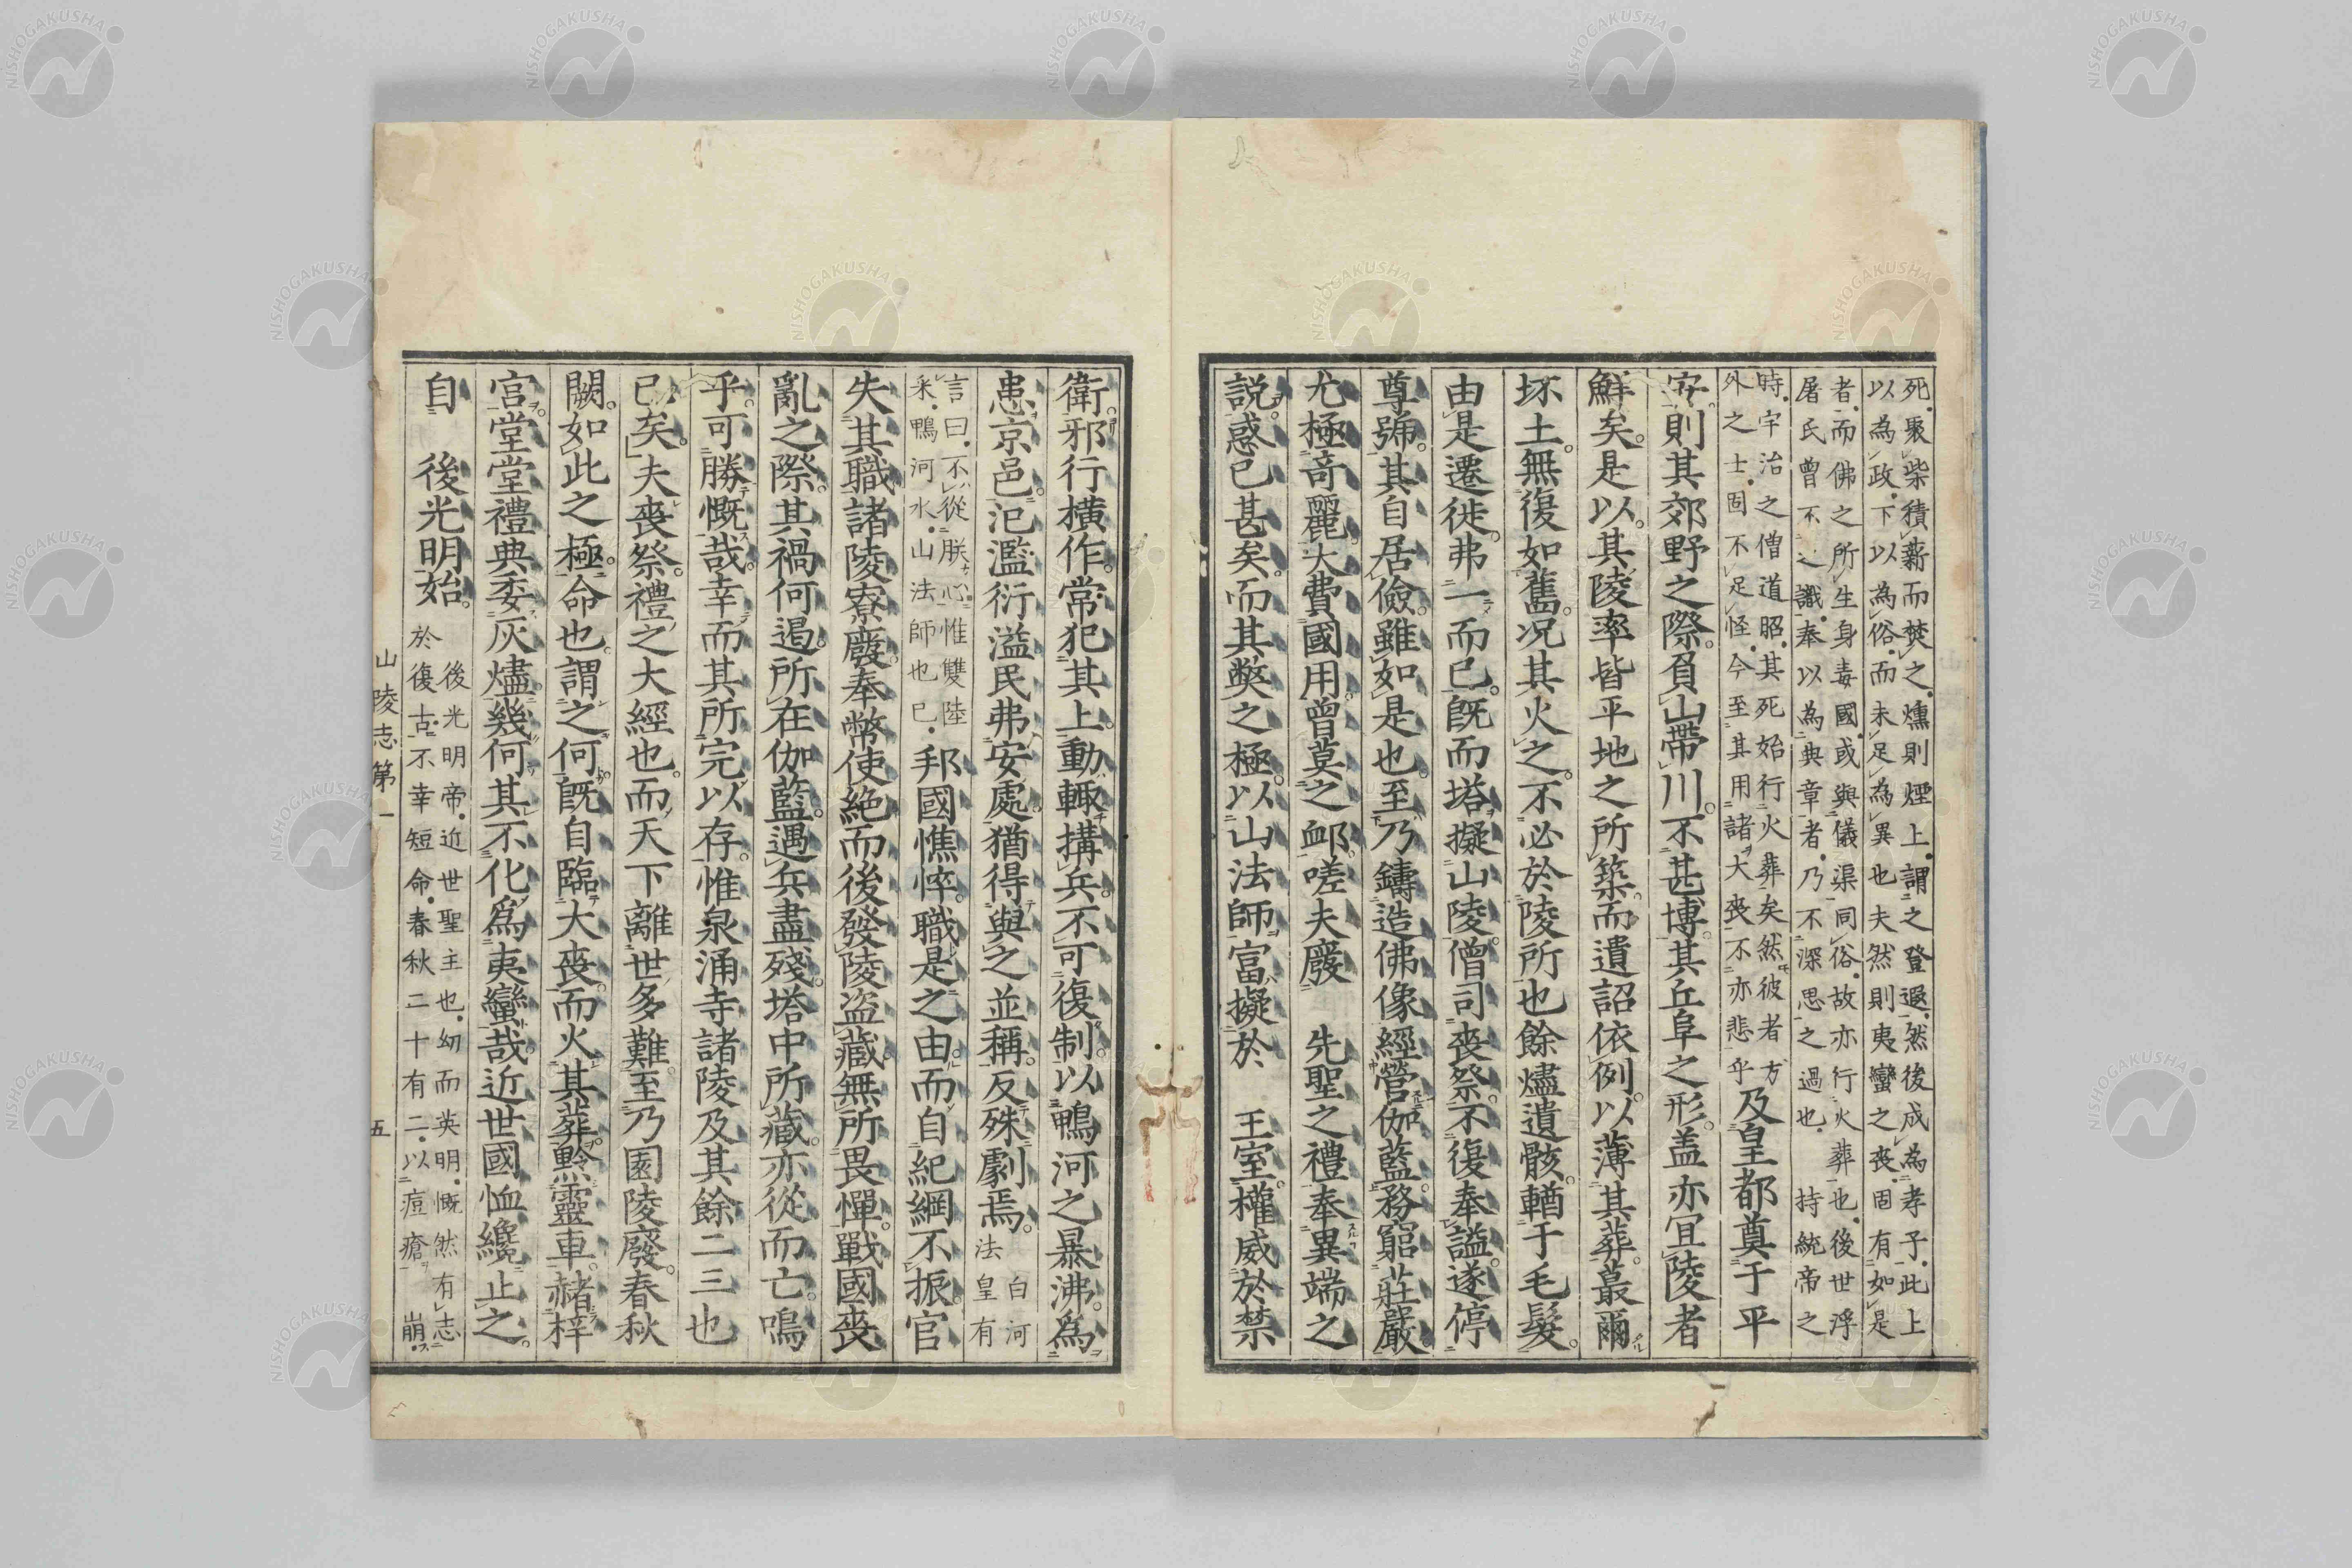 死聚柴積薪而焚之燻則煙上謂之登遐然後成為孝子此上
以為政下以為俗而未足為異也夫然則夷蠻之喪固有如是
者而佛之所生身毒國或與儀渠同俗故亦行火葬也後世浮
屠氏曾不之識奉以為典章者乃不深思之過也持統帝之
時宇治之僧道昭其死始行火葬矣然彼者方
外之士固不足怪今至其用諸大喪不亦悲乎
及皇都奠于平
安則其郊野之際負山帶川不甚博其丘阜之形盖亦宜陵者
鮮矣是以其陵率皆平地之所築而遺詔依例以薄其葬蕞爾
坏土無復如舊况其火之不必於陵所也餘燼遺骸輶于毛髮
由是遷徙弗一而已既而塔擬山陵僧司喪祭不復奉謚遂停
尊號其自居儉雖如是也至乃鑄造佛像經營伽藍務窮莊嚴
尤極奇麗大費國用曾莫之䘏嗟夫廢　先聖之禮奉異端之
説惑已甚矣而其獘之極以山法師富擬於　王室權威於禁
衛邪行橫作常犯其上動輙搆兵不可復制以鴨河之暴沸爲
患京邑氾濫衍溢民弗安處猶得與之並稱反殊劇焉
白河
法皇有
言曰不從朕心惟雙陸
釆鴨河水山法師也已
邦國憔悴職是之由而自紀綱不振官
失其職諸陵寮廢奉幣使絶而後發陵盗藏無所畏憚戰國喪
亂之際其禍何遏所在伽藍遇兵盡殘塔中所藏亦從而亡嗚
乎可勝慨哉幸而其所完以存惟泉涌寺諸陵及其餘二三也
已矣夫喪祭禮之大經也而天下離世多難至乃園陵廢春秋
闕如此之極命也謂之何既自臨大喪而火其葬黔靈車赭梓
宮堂堂禮典委灰燼幾何其不化爲夷蠻哉近世國恤纔止之
自　後光明始
後光明帝近世聖主也幼而英明慨然有志
於復古不幸短命春秋二十有二以痘瘡崩
山陵志第一
五
NISHOGAKUSHA